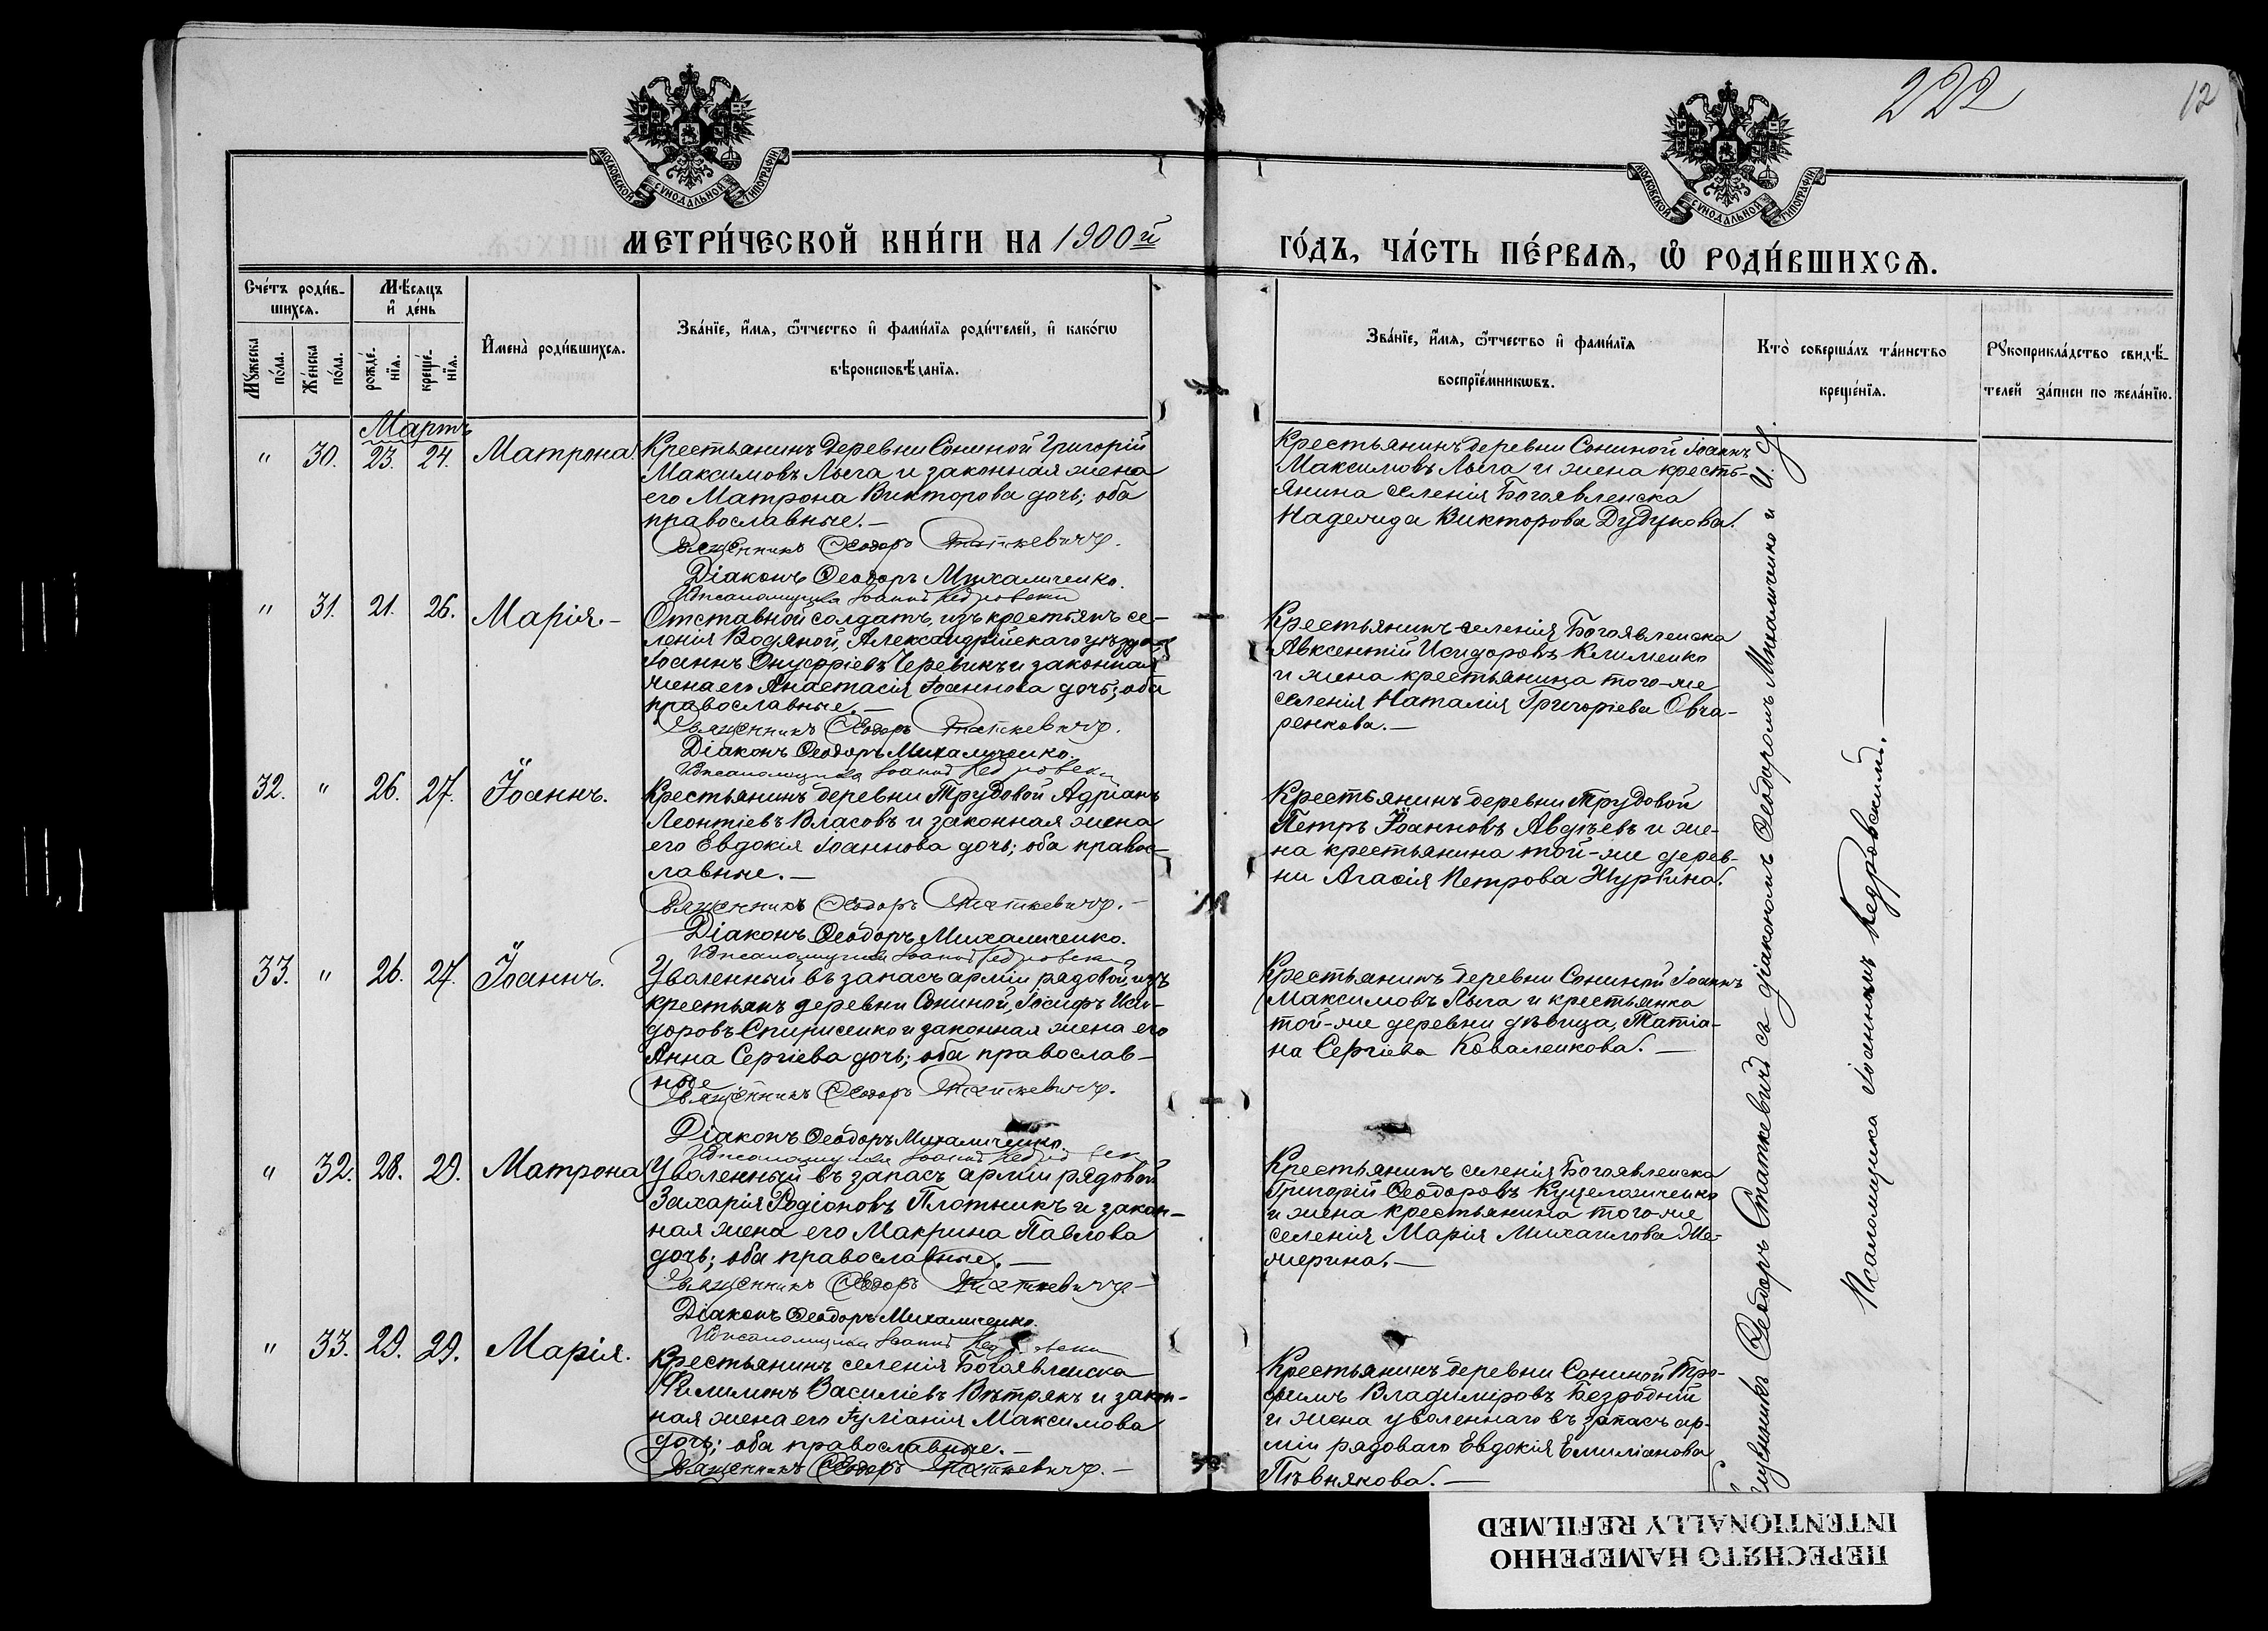 222
12
МОСКОВСКОЙ СѴНОДАЛЬНОЙ ТИПОГРАФІИ
МОСКОВСКОЙ СѴНОДАЛЬНОЙ ТИПОГРАФІИ
МЕТРИ́ЧЕСКОЙ КНИ́ГИ НА 1900й
ГО́ДЪ, ЧА́СТЬ ПЕ́РВАѦ, Ѡ РОДИ́ВШИХСѦ.
Сче́тъ роди́в-
шихсѧ.
Мѣ́сѧцъ
и҆ де́нь
Мꙋжеска
по́ла.
Же́нска
по́ла.
рожде́-
нїѧ.
креще́-
нїѧ.
И҆мена̀ роди́вшихсѧ.
Зва́нїе, и҆́мѧ, ѻ҆́тчество и҆ фами́лїѧ роди́телей, и҆ како́гѡ
вѣроисповѣ́данїѧ.
Зва́нїе, и҆́мѧ, ѻ҆́тчество и҆ фами́лїѧ
воспрїе́мникѡвъ.
Кто̀ соверша́лъ та́инство
креще́нїѧ.
Рꙋкоприкла́дство свидѣ́-
телей за́писи по жела́нїю.
Мартъ
" 30. 23. 24. Матрона.
Крестьянинъ деревни Сониной Григорій
Максимовъ Лыга и законная жена
его Матрона Викторова дочь; оба
православные.-
Священникъ Ѳеодоръ Статкевичъ.
Діаконъ Ѳеодоръ Михаличенко.
И.д. псаломщика Іоаннъ Кедровский
Крестьянинъ деревни Сониной Іоаннъ
Максимовъ Лыга и жена кресть-
янина селенія Богоявленска
Надежда Викторова Дудукова.
" 31. 21. 26. Марія.-
Отставной солдатъ, изъ крестьянъ се-
ленія Водяной, Александрійскаго уѣзда,
Іоаннъ Онуфріевъ Черевикъ и законная
жена его Анастасія Іоаннова дочь; оба
православные.-
Священникъ Ѳеодоръ Статкевичъ.
Діаконъ Ѳеодоръ Михаличенко.
И.д. псаломщика Іоаннъ Кедровский
Крестьянинъ селенія Богоявленска
Авксентій Исидоровъ Клименко
и жена крестьянина того-же
селенія Наталія Григоріева Овча-
ренкова.-
32. " 26. 27. Іоаннъ.
Крестьянинъ деревни Трудовой Адріанъ
Леонтіевъ Власовъ и законная жена
его Евдокія Іоаннова дочь; оба правос-
лавные.-
Священникъ Ѳеодоръ Статкевичъ.-
Діаконъ Ѳеодоръ Михаличенко.
И.д. псаломщика Іоаннъ Кедровский
Крестьянинъ деревни Трудовой
Петръ Іоанновъ Авдѣевъ и же-
на крестьянина той-же дерев-
ни Агаѳія Петрова Журбина.
33. " 26. 27. Іоаннъ.
Уволенный въ запасъ арміи рядовой, изъ
крестьянъ деревни Сониной, Іосифъ Иси-
доровъ Спирисенко и законная жена его
Анна Сергіева дочь; оба православ-
ные
Священникъ Ѳеодоръ Статкевичъ.
Діаконъ Ѳеодоръ Михаличенко.
И.д. псаломщика Іоаннъ Кедровский
Крестьянинъ деревни Сониной Іоаннъ
Максимовъ Лыга и крестьянка
той-же деревни дѣвица, Татіа-
на Сергіева Коваленкова.-
" 32. 28. 29. Матрона
Уволенный въ запасъ арміи рядовой
Захарія Родіоновъ Плотникъ и закон-
ная жена его Макрина Павлова
дочь; оба православные.-
Священникъ Ѳеодоръ Статкевичъ-
Діаконъ Ѳеодоръ Михаличенко.
И.д. псаломщика Іоаннъ Кедровский
Крестьянинъ селенія Богоявленска
Григорій Ѳеодоровъ
и жена крестьянина того-же
селенія Марія Михаилова Же-
мерина.-
" 33. 29. 29. Марія.
Крестьянинъ селенія Богоявленска
Филимонъ Василіевъ Вѣтрякъ и закон-
ная жена его Іуліанія Максимова
дочь; оба православные.-
Священникъ Ѳеодоръ Статкевичъ.-
Крестьянинъ деревни Сониной Тро-
фимъ Владиміровъ Безродній
и жена уволеннаго въ запасъ ар-
міи рядоваго Евдокія Емиліанова
Пѣвнякова.-
Священникъ Ѳеодоръ Статкевичъ съ діакономъ Ѳеодоромъ Михаличенко и И. д.
Псаломщика Іоанномъ Кедровскимъ.
ПЕРЕСНЯТО НАМЕРЕННО
INTENTIONALLY REFILMED